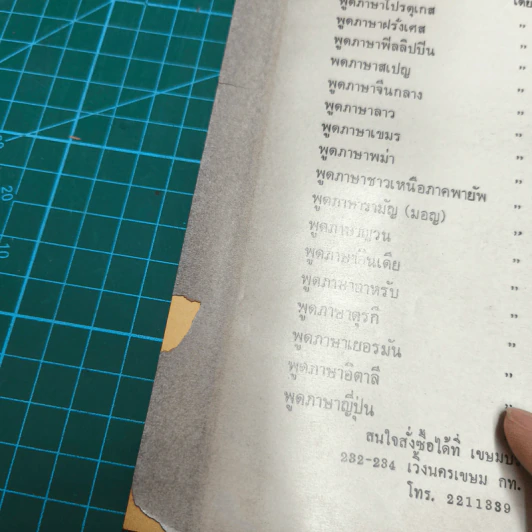 พูดภาษาโปรตุเกส
พูดภาษาฝรั่งเศส "
พูดภาษาฟิลลิปปีน "
พูดภาษาสเปญ "
พูดภาษาจีนกลาง "
พูดภาษาลาว "
พูดภาษาเขมร "
พูดภาษาพม่า "
พูดภาษาชาวเหนือภาคพายัพ "
พูดภาษารามัญ (มอญ) "
พูดภาษาญวน "
พูดภาษาอินเดีย "
พูดภาษาอาหรับ "
พูดภาษาตุรกี "
พูดภาษาเยอรมัน "
พูดภาษาอิตาลี "
พูดภาษาญี่ปุ่น "
สนใจสั่งซื้อได้ที่
232-234 เวิ้งนครเขษม กท.
โทร. 2211339
20
10